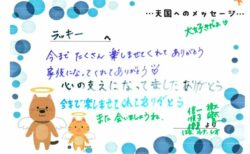 …天国へのメッセージ…
大好きだよ
ラッキーへ
今までたくさん楽しませてくれてありがとう
家族になってくれてありがとう
心の支えになって来ました ありがとう
今まで楽しませてくれてありがとう
また会いましょうね。
より